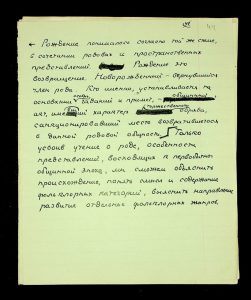 ← Рождение понималось согласно той же схеме,
в сочетании родовых и пространственных
представлений. Рождение это
возвращение. Новорожденный - вернувшийся
член рода. Кто именно, устанавливалось на
основании гаданий и примет,
имя, характер права,
санкционировавший место возвратившегося
в данной родовой общности. Только
усвоив учение о роде, особенности
представлений, восходящих к первобытно-
общинной эпохе, мы сможем объяснить
происхождение, понять смысл и содержание
фольклорных категорий, выяснить направление
развития отдельных фольклорных жанров.